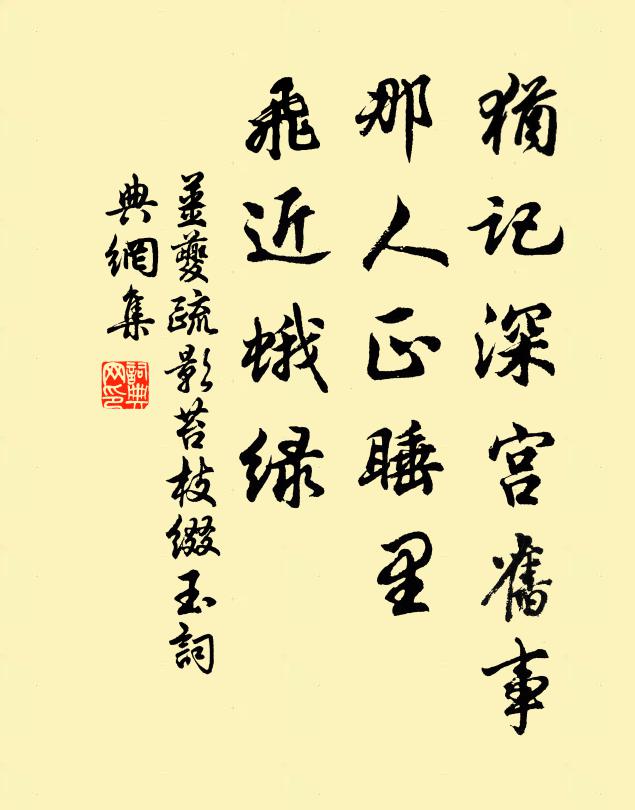 猶记深宫舊事
那人正睡里
飛近蛾绿
薑夔疏影苔枝缀玉詞
典網集
詞典网印